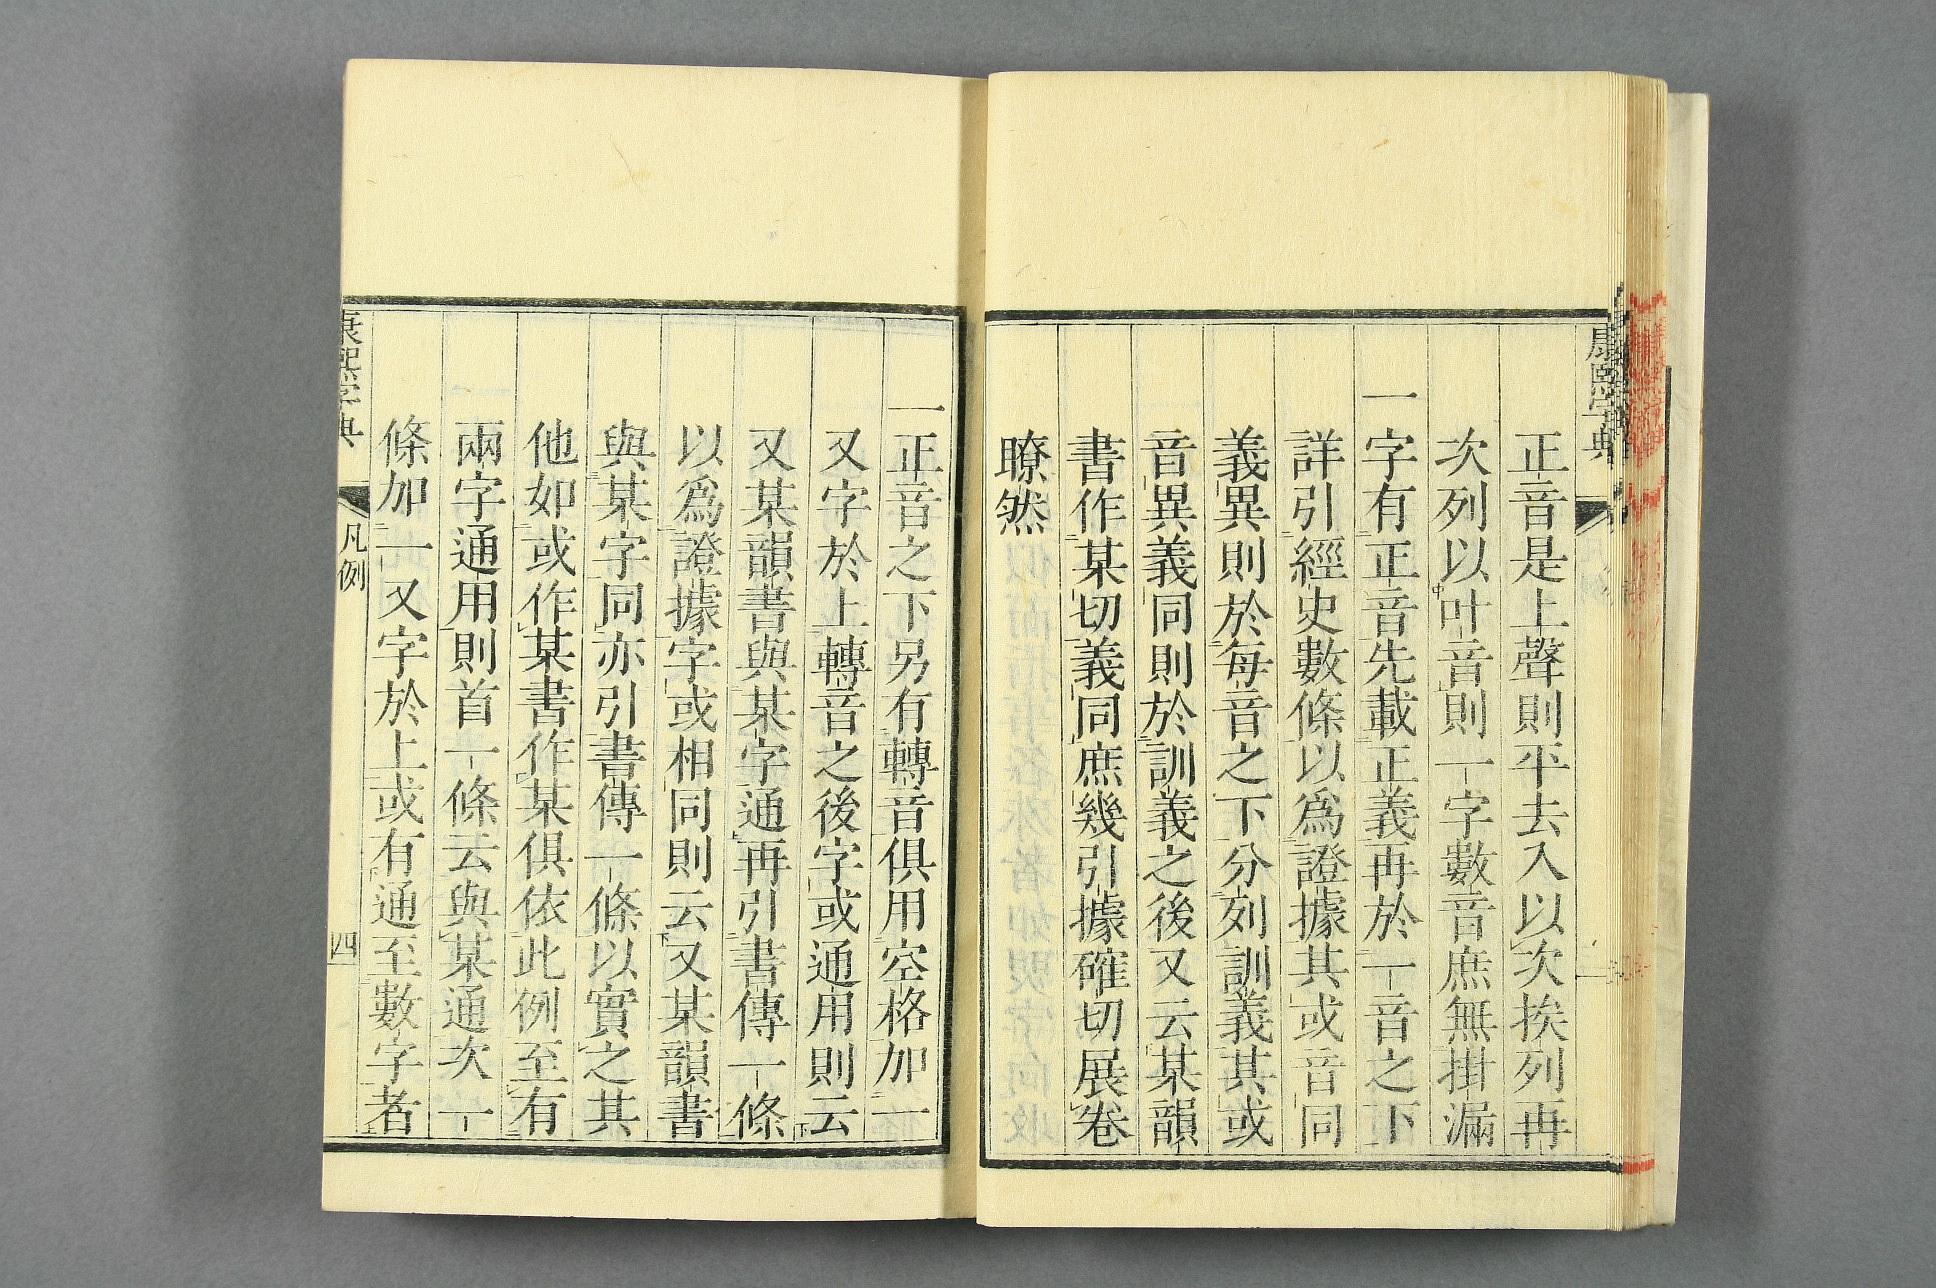 康熙字典
正音是上聲則平去入以次挨列再
次列以叶音則一字數音庶無掛漏
一字有正音先載正義再於一音之下
詳引經史數條以爲證據其或音同
義異則於每音之下分列訓義其或
音異義同則於訓義之後又云某韻
書作某切義同庶幾引據確切展卷
瞭然
一正音之下另有轉音俱用空格加一
又字於上轉音之後字或通用則云
又某韻書與某字通再引書傳一條
以爲證據字或相同則云又某韻書
與某字同亦引書傳一條以實之其
他如或作某書作某俱依此例至有
兩字通用則首一條云與某通次一
條加一又字於上或有通至數字者
康熙字典
凡例
四